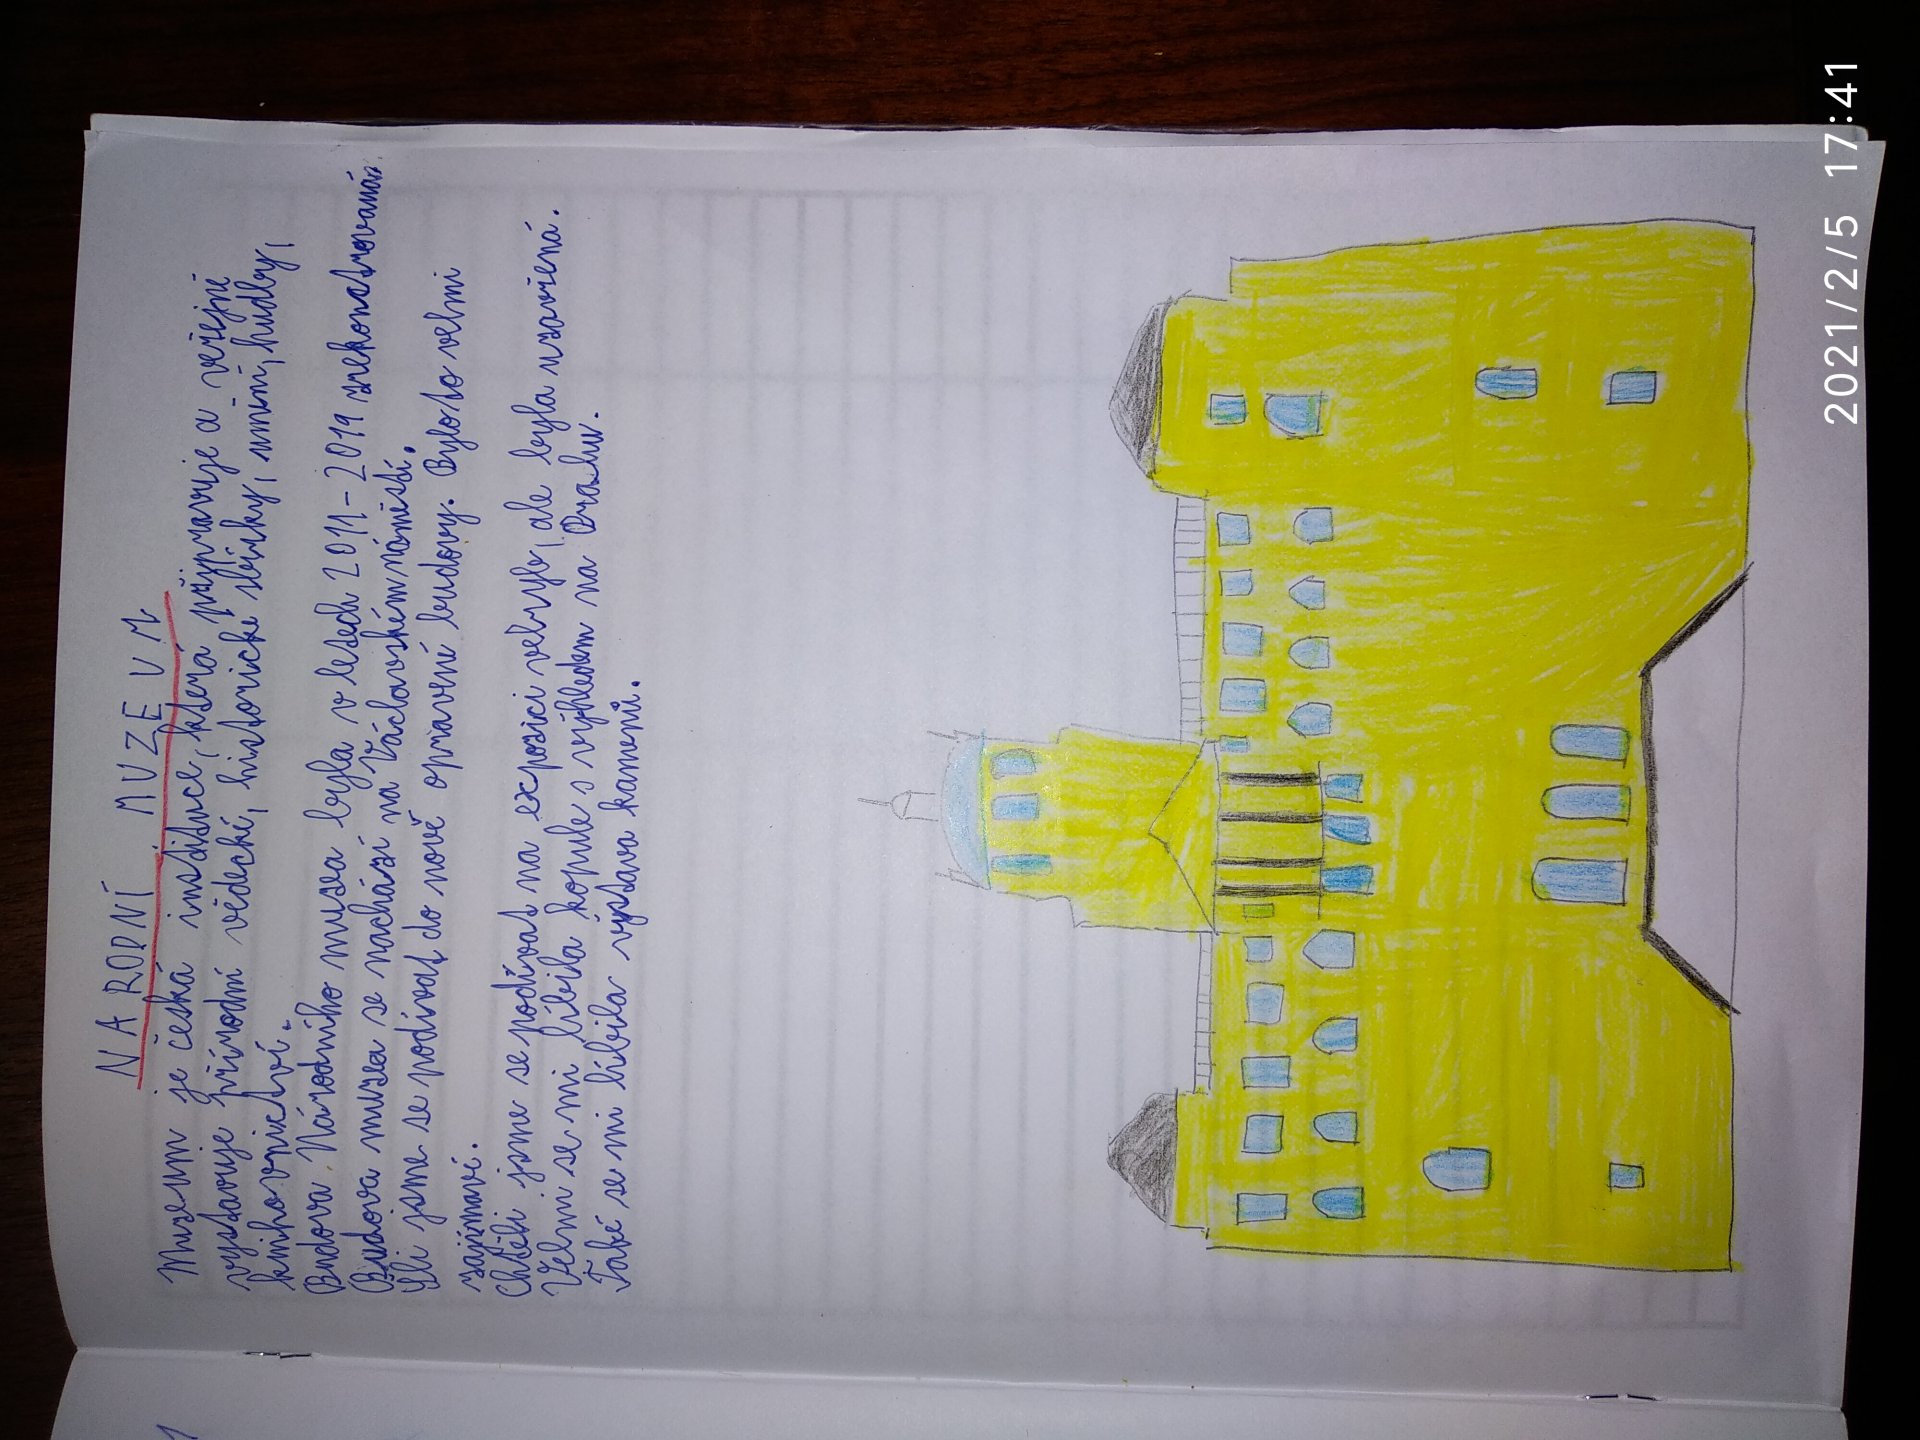 NARODNÍ MUZEUM
Muzeum je česká instituce, která připravuje a veřejně
vystavuje přírodní vědecké, historické sbírky, umění, hudby,
knihovnictví.
Budova Národního muzea byla v letech 2011-2019 zrekonstrovaná.
Budova muzea se nachází na Václavském náměstí.
Šli jsme se podívat do nově opravené budovy. Bylo to velmi
zajímavé.
Chtěli jsme se podívat na expozici velryb, ale byla uzavřená.
Velmi se mi líbila kopule s výhledem na Prahu.
Také se mi líbila výstava kamenů.
2021/2/5 17:41